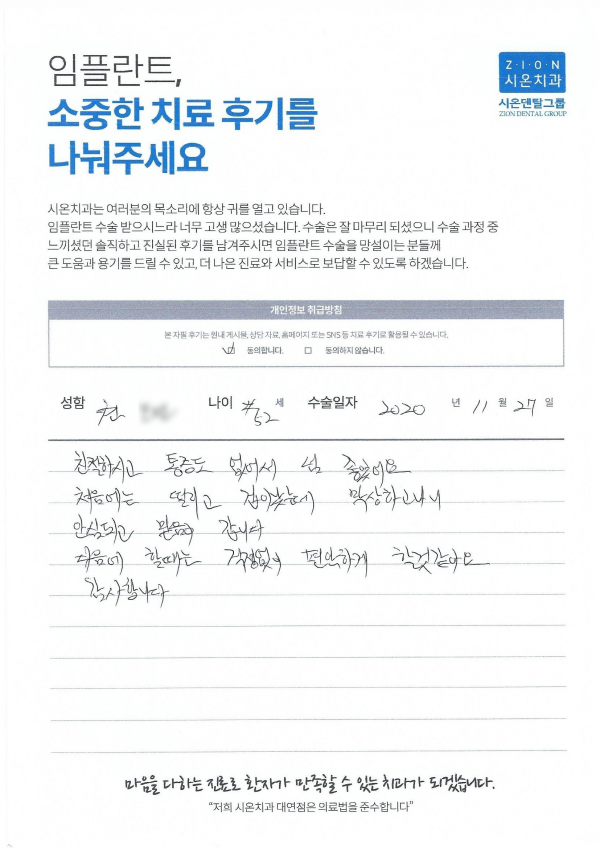 임플란트,
소중한 치료 후기를
나눠주세요
Z·I·O·N
시온치과
시온덴탈그룹
ZION DENTAL GROUP
시온치과는 여러분의 목소리에 항상 귀를 열고 있습니다.
임플란트 수술 받으시느라 너무 고생 많으셨습니다. 수술은 잘 마무리 되셨으니 수술 과정 중
느끼셨던 솔직하고 진실된 후기를 남겨주시면 임플란트 수술을 망설이는 분들께
큰 도움과 용기를 드릴 수 있고, 더 나은 진료와 서비스로 보답할 수 있도록 하겠습니다.
개인정보 취급방침
본 자필 후기는 원내 게시물, 상담 자료, 홈페이지 또는 SNS 등 치료 후기로 활용될 수 있습니다.
동의합니다. 동의하지 않습니다.
성함 천 나이 52 세 수술일자 2020 년 11 월 27 일
친절하시고 통증도 없어서 넘 좋았어요
처음에는 떨리고 겁이났는데 막상하고나니
안심되고 믿음이 갑니다
다음에 할때는 걱정없이 편안하게 할것같아요
감사합니다
마음을 다하는 진료로 환자가 만족할 수 있는 치과가 되겠습니다.
"저희 시온치과 대연점은 의료법을 준수합니다"